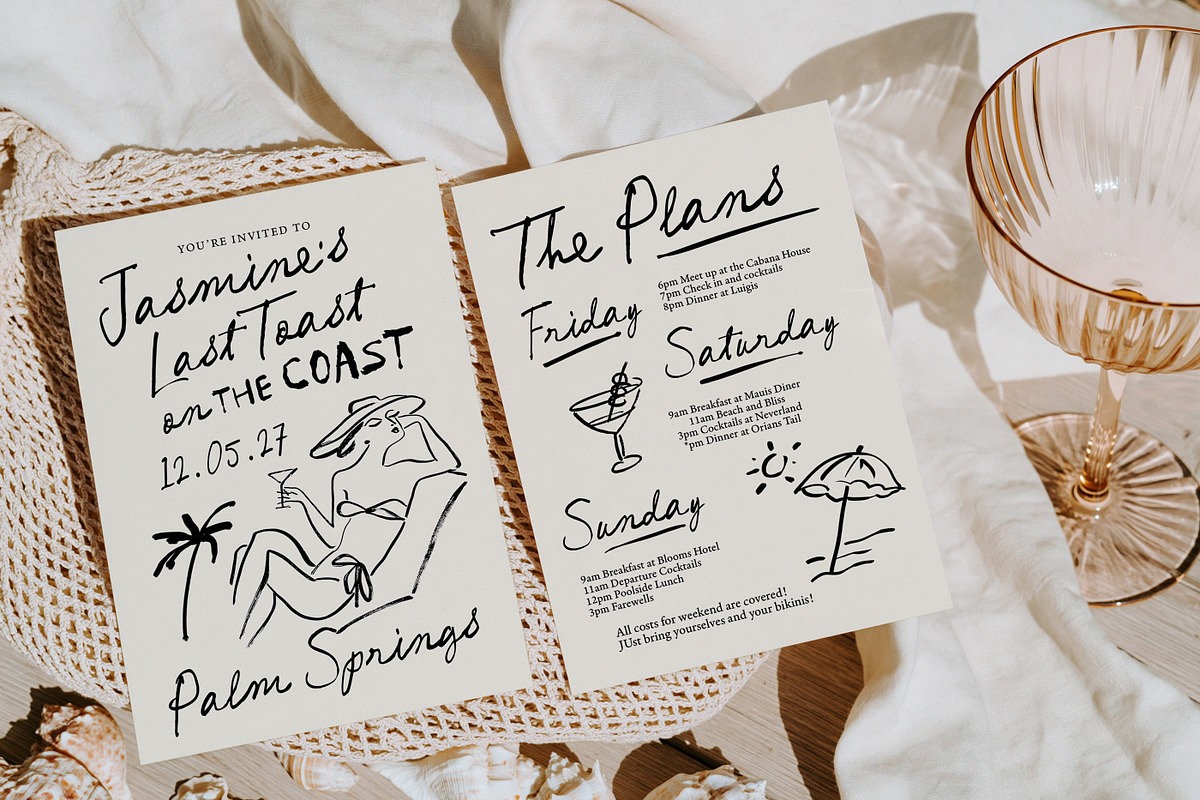 YOU'RE INVITED TO
Jasmine's
Last Toast
on THE COAST
12.05.27
Palm Springs
The Plans
Friday
6pm Meet up at the Cabana House
7pm Check in and cocktails
8pm Dinner at Luigis
Saturday
9am Breakfast at Mauis Diner
11am Beach and Bliss
3pm Cocktails at Neverland
*pm Dinner at Orians Tail
Sunday
9am Breakfast at Blooms Hotel
11am Departure Cocktails
12pm Poolside Lunch
3pm Farewells
All costs for weekend are covered!
JUst bring yourselves and your bikinis!